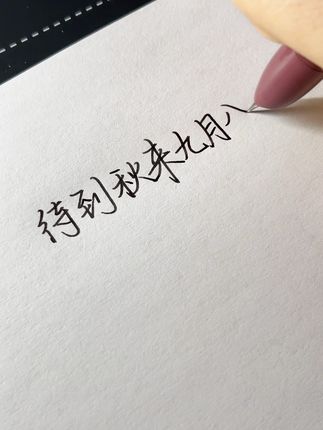 待到秋来九月八